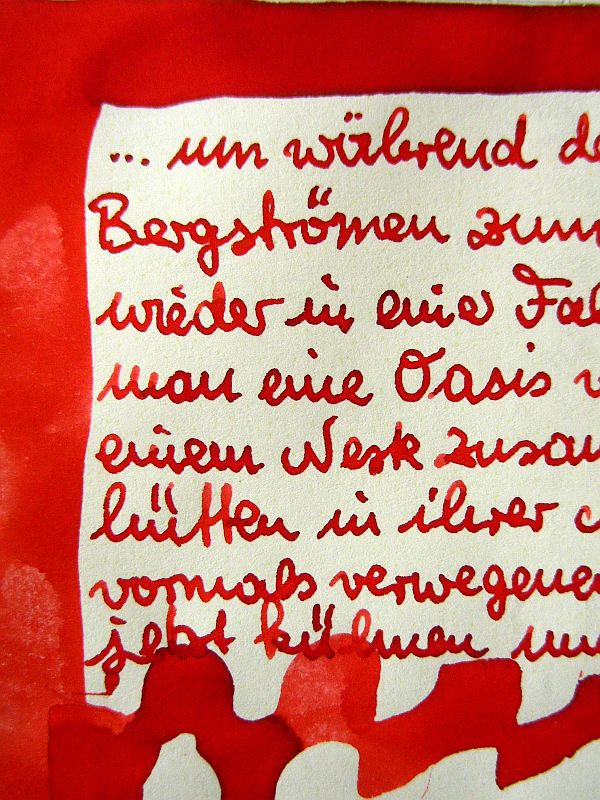 ... um während de
Bergströmen zum
wieder in eine Fal
man eine Oasis
einem Nest zusam
hütten in ihrer
vormals verwegenen
jetzt kühnen